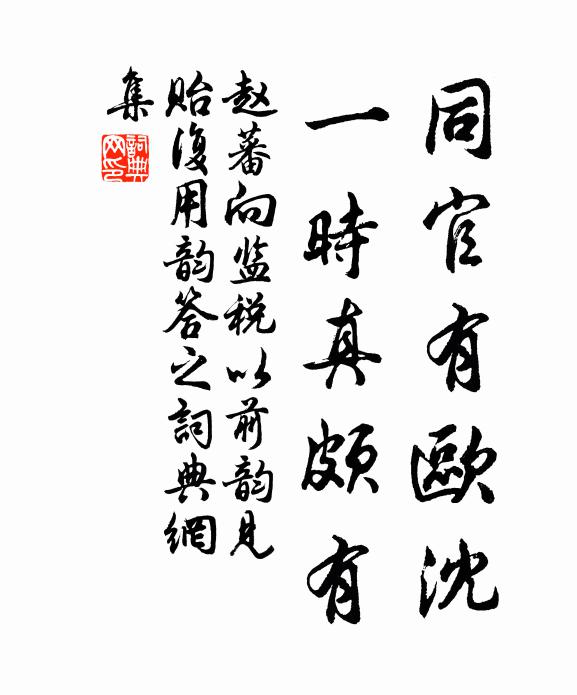 同官有歐沈
一時真頗有
赵蕃向监税以前韵見
贻復用韵答之詞典網
集
詞典网印